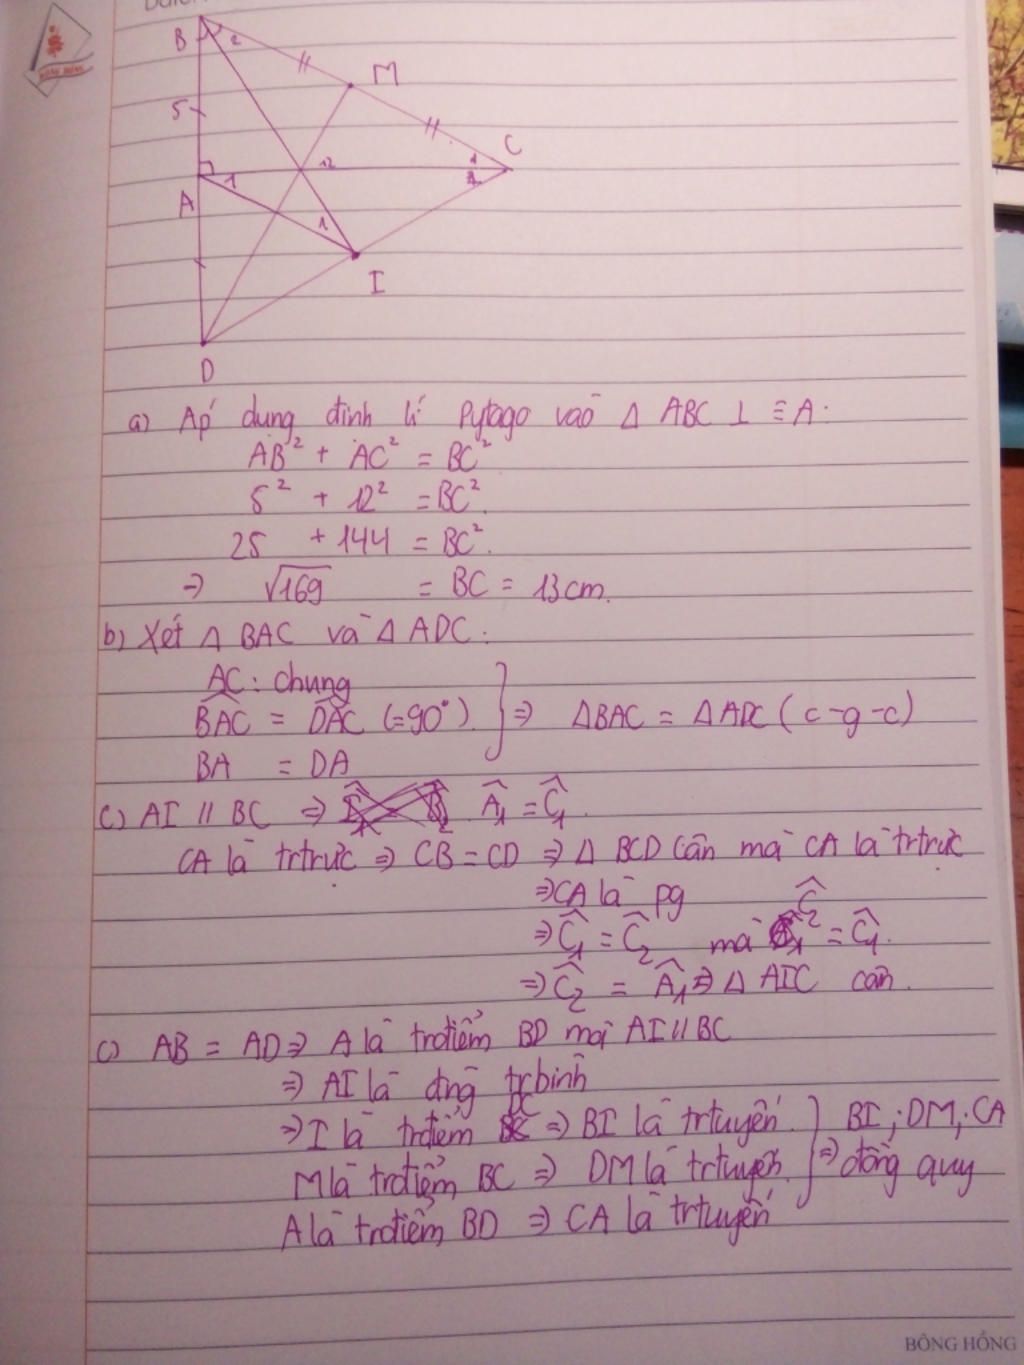 BÔNG HỒNG
B 2
M
5
C
1
12
2
A 1
1
I
D
a) Áp dụng định lí Pytago vào Δ ABC ⊥ ≡ A:
AB² + AC² = BC²
5² + 12² = BC².
25 + 144 = BC².
=> √169 = BC = 13cm.
b) Xét Δ BAC và Δ ADC:
AC: chung
BAC = DAC (=90°). } => ΔBAC = ΔADC (c-g-c)
BA = DA
c) AI // BC => Â₁ = Ĉ₁.
CA là trtrực => CB = CD => Δ BCD cân mà CA là trtrực
=> CA là pg
=> Ĉ₁ = Ĉ₂ mà Ĉ₂ = Ĉ₁.
=> Ĉ₂ = Â₁ => Δ AIC cân.
c) AB = AD => A là trđiểm BD mà AI // BC
=> AI là đng trbình
=> I là trđiểm DC => BI là trtuyến. } BI; DM; CA
M là trđiểm BC => DM là trtuyến. => đồng quy
A là trđiểm BD => CA là trtuyến
BÔNG HỒNG